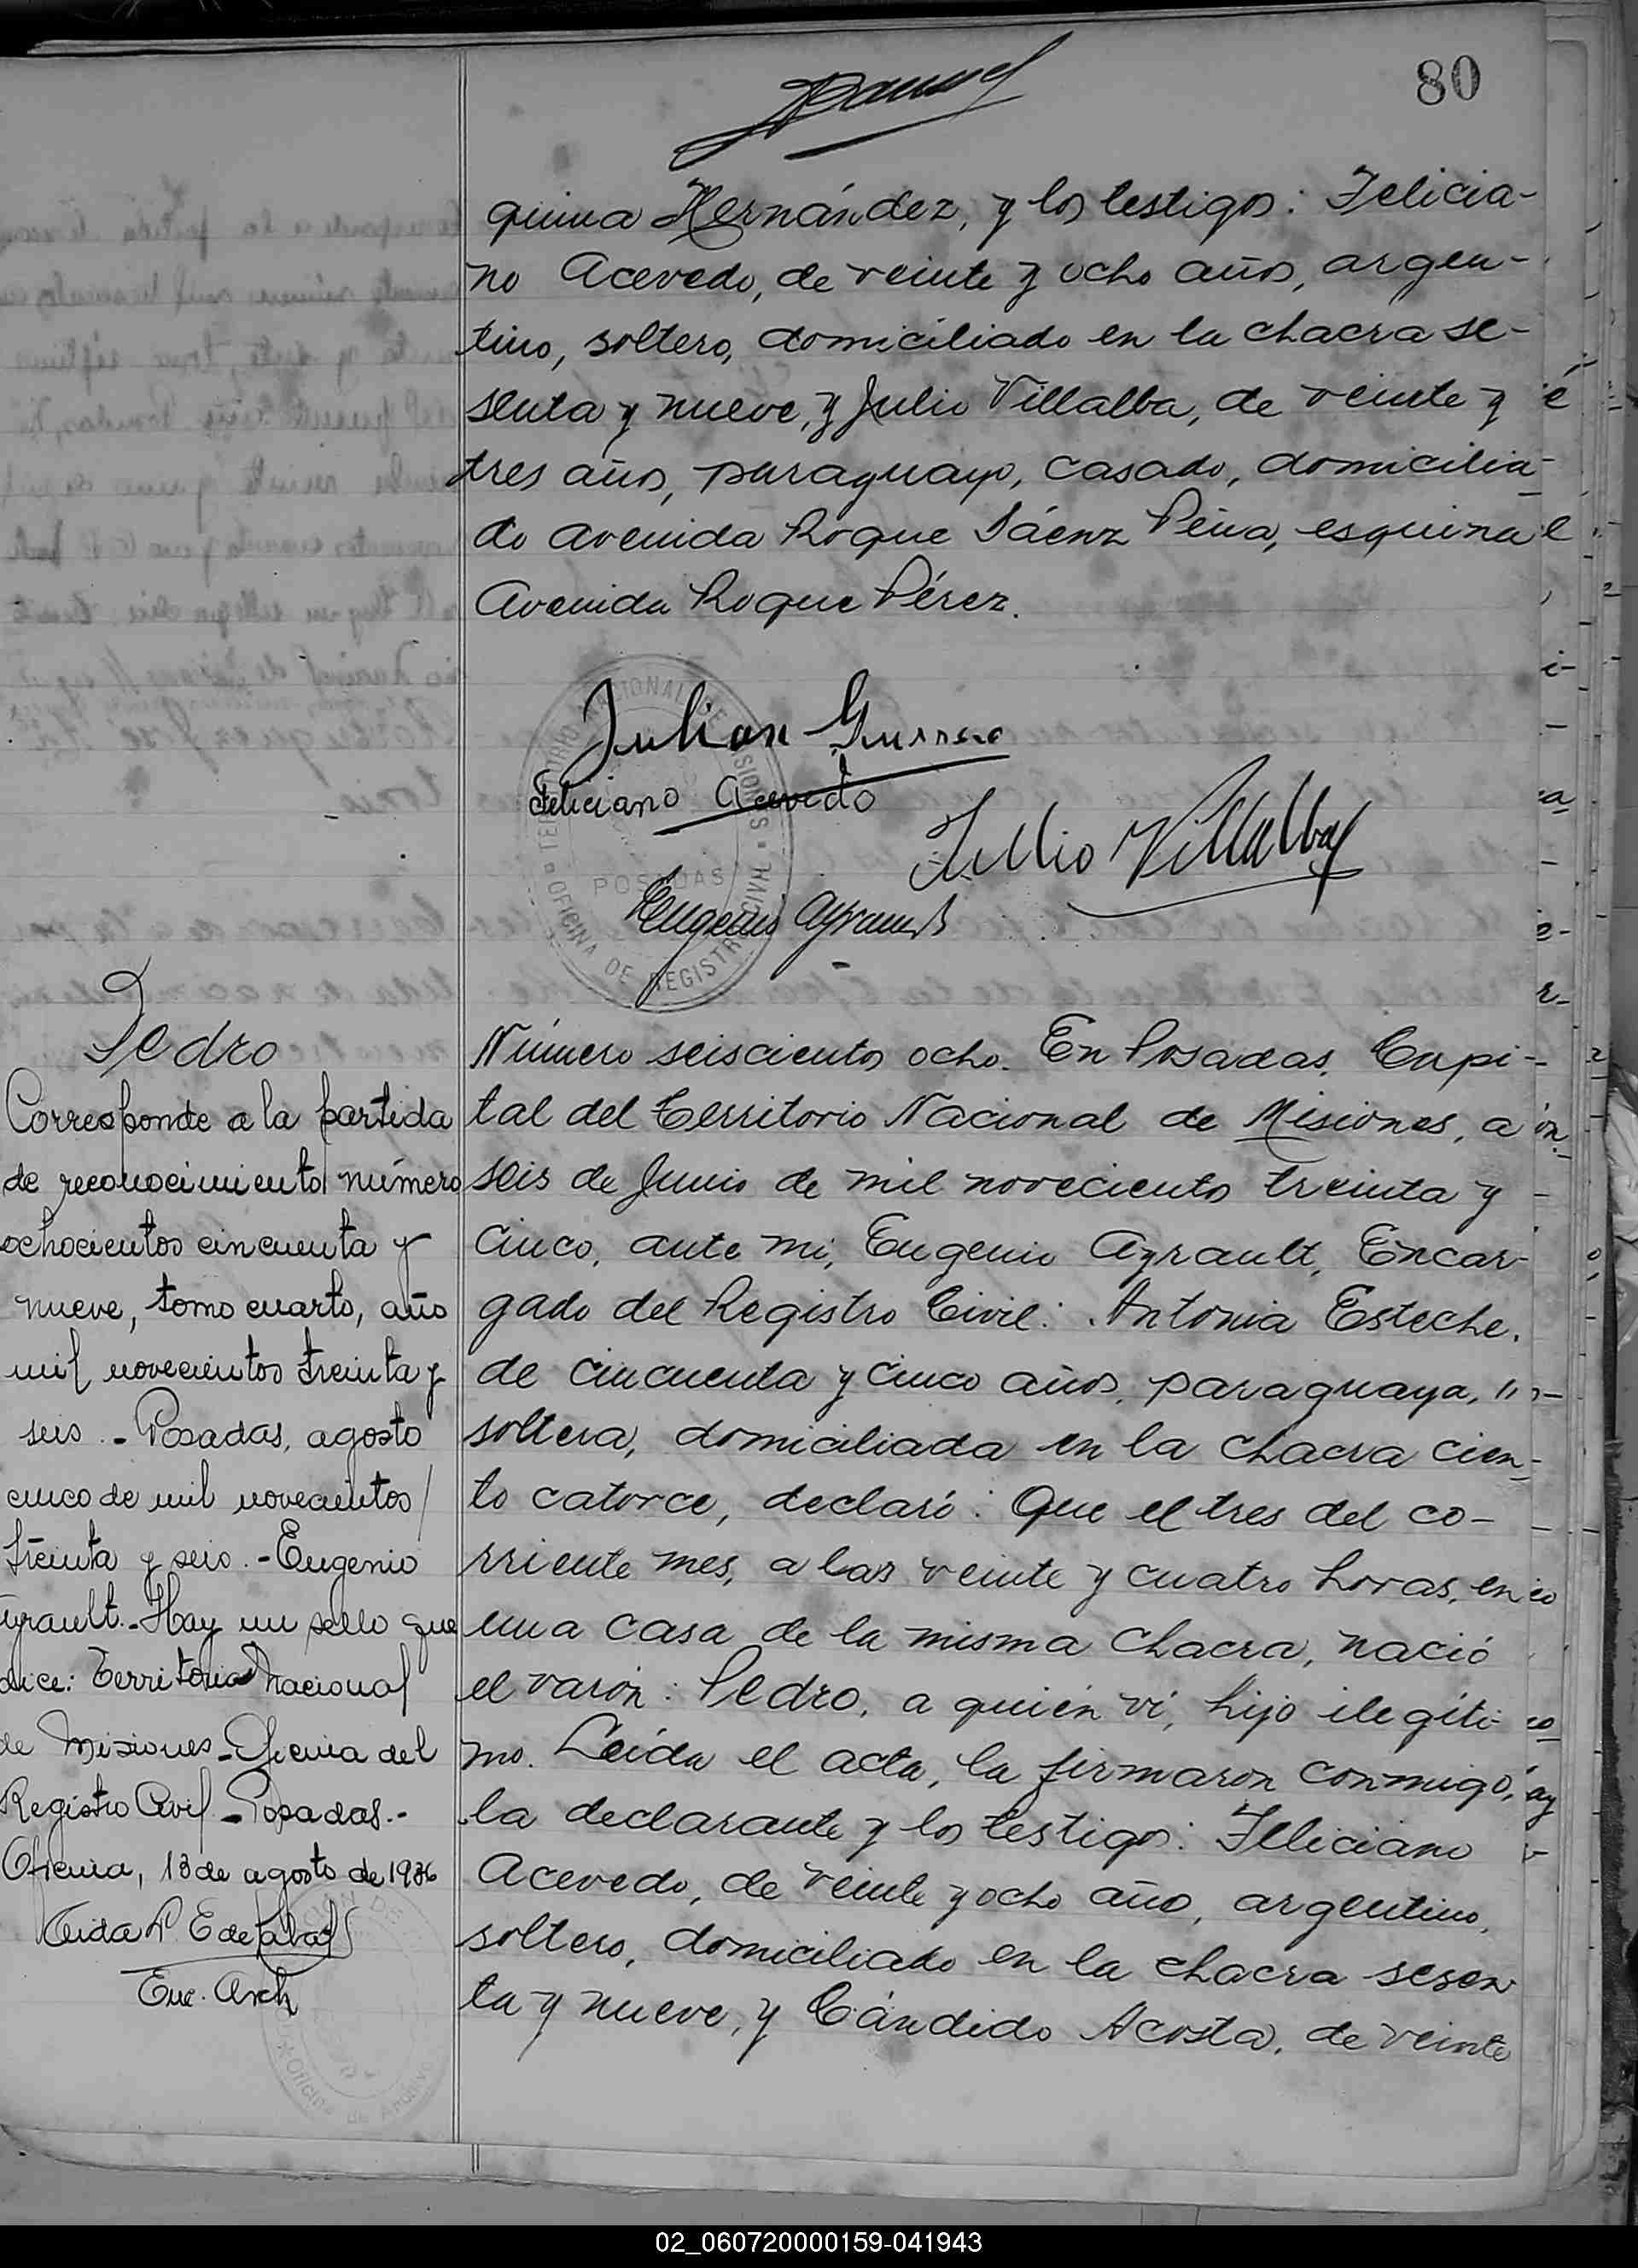 80
quina Hernández, y los testigos: Felicia-
no Acevedo, de veinte y ocho años, argen-
tino, soltero, domiciliado en la chacra se-
senta y nueve, y Julio Villalba, de veinte y
tres años, paraguayo, casado, domicilia-
do avenida Roque Sáenz Peña, esquina
Avenida Roque Pérez.
Julian Guerrero
Feliciano Acevedo
Julio Villalba
Eugenio Ayrault
TERRITORIO NACIONAL DE MISIONES
POSADAS
OFICINA DE REGISTRO CIVIL
Pedro
Corresponde a la partida
de reconocimiento número
ochocientos cincuenta y
nueve, tomo cuarto, año
mil novecientos treinta y
seis.- Posadas, agosto
cinco de mil novecientos
treinta y seis.- Eugenio
Ayrault.- Hay un sello que
dice: Territorio Nacional
de Misiones - Oficina del
Registro Civil - Posadas.-
Oficina, 13 de agosto de 1936
Enc. Arch
Número seiscientos ocho. En Posadas, Capi-
tal del Territorio Nacional de Misiones, a
seis de Junio de mil novecientos treinta y
cinco, ante mi, Eugenio Ayrault, Encar-
gado del Registro Civil: Antonia Esteche,
de cincuenta y cinco años, paraguaya,
soltera, domiciliada en la chacra cien-
to catorce, declaró: Que el tres del co-
rriente mes, a las veinte y cuatro horas, en
una casa de la misma chacra, nació
el varón: Pedro, a quién ví, hijo ilegíti-
mo. Leída el acta, la firmaron conmigo,
la declarante y los testigos: Feliciano
Acevedo, de veinte y ocho año, argentino,
soltero, domiciliado en la chacra sesen
ta y nueve, y Cándido Acosta, de veinte
02_060720000159-041943